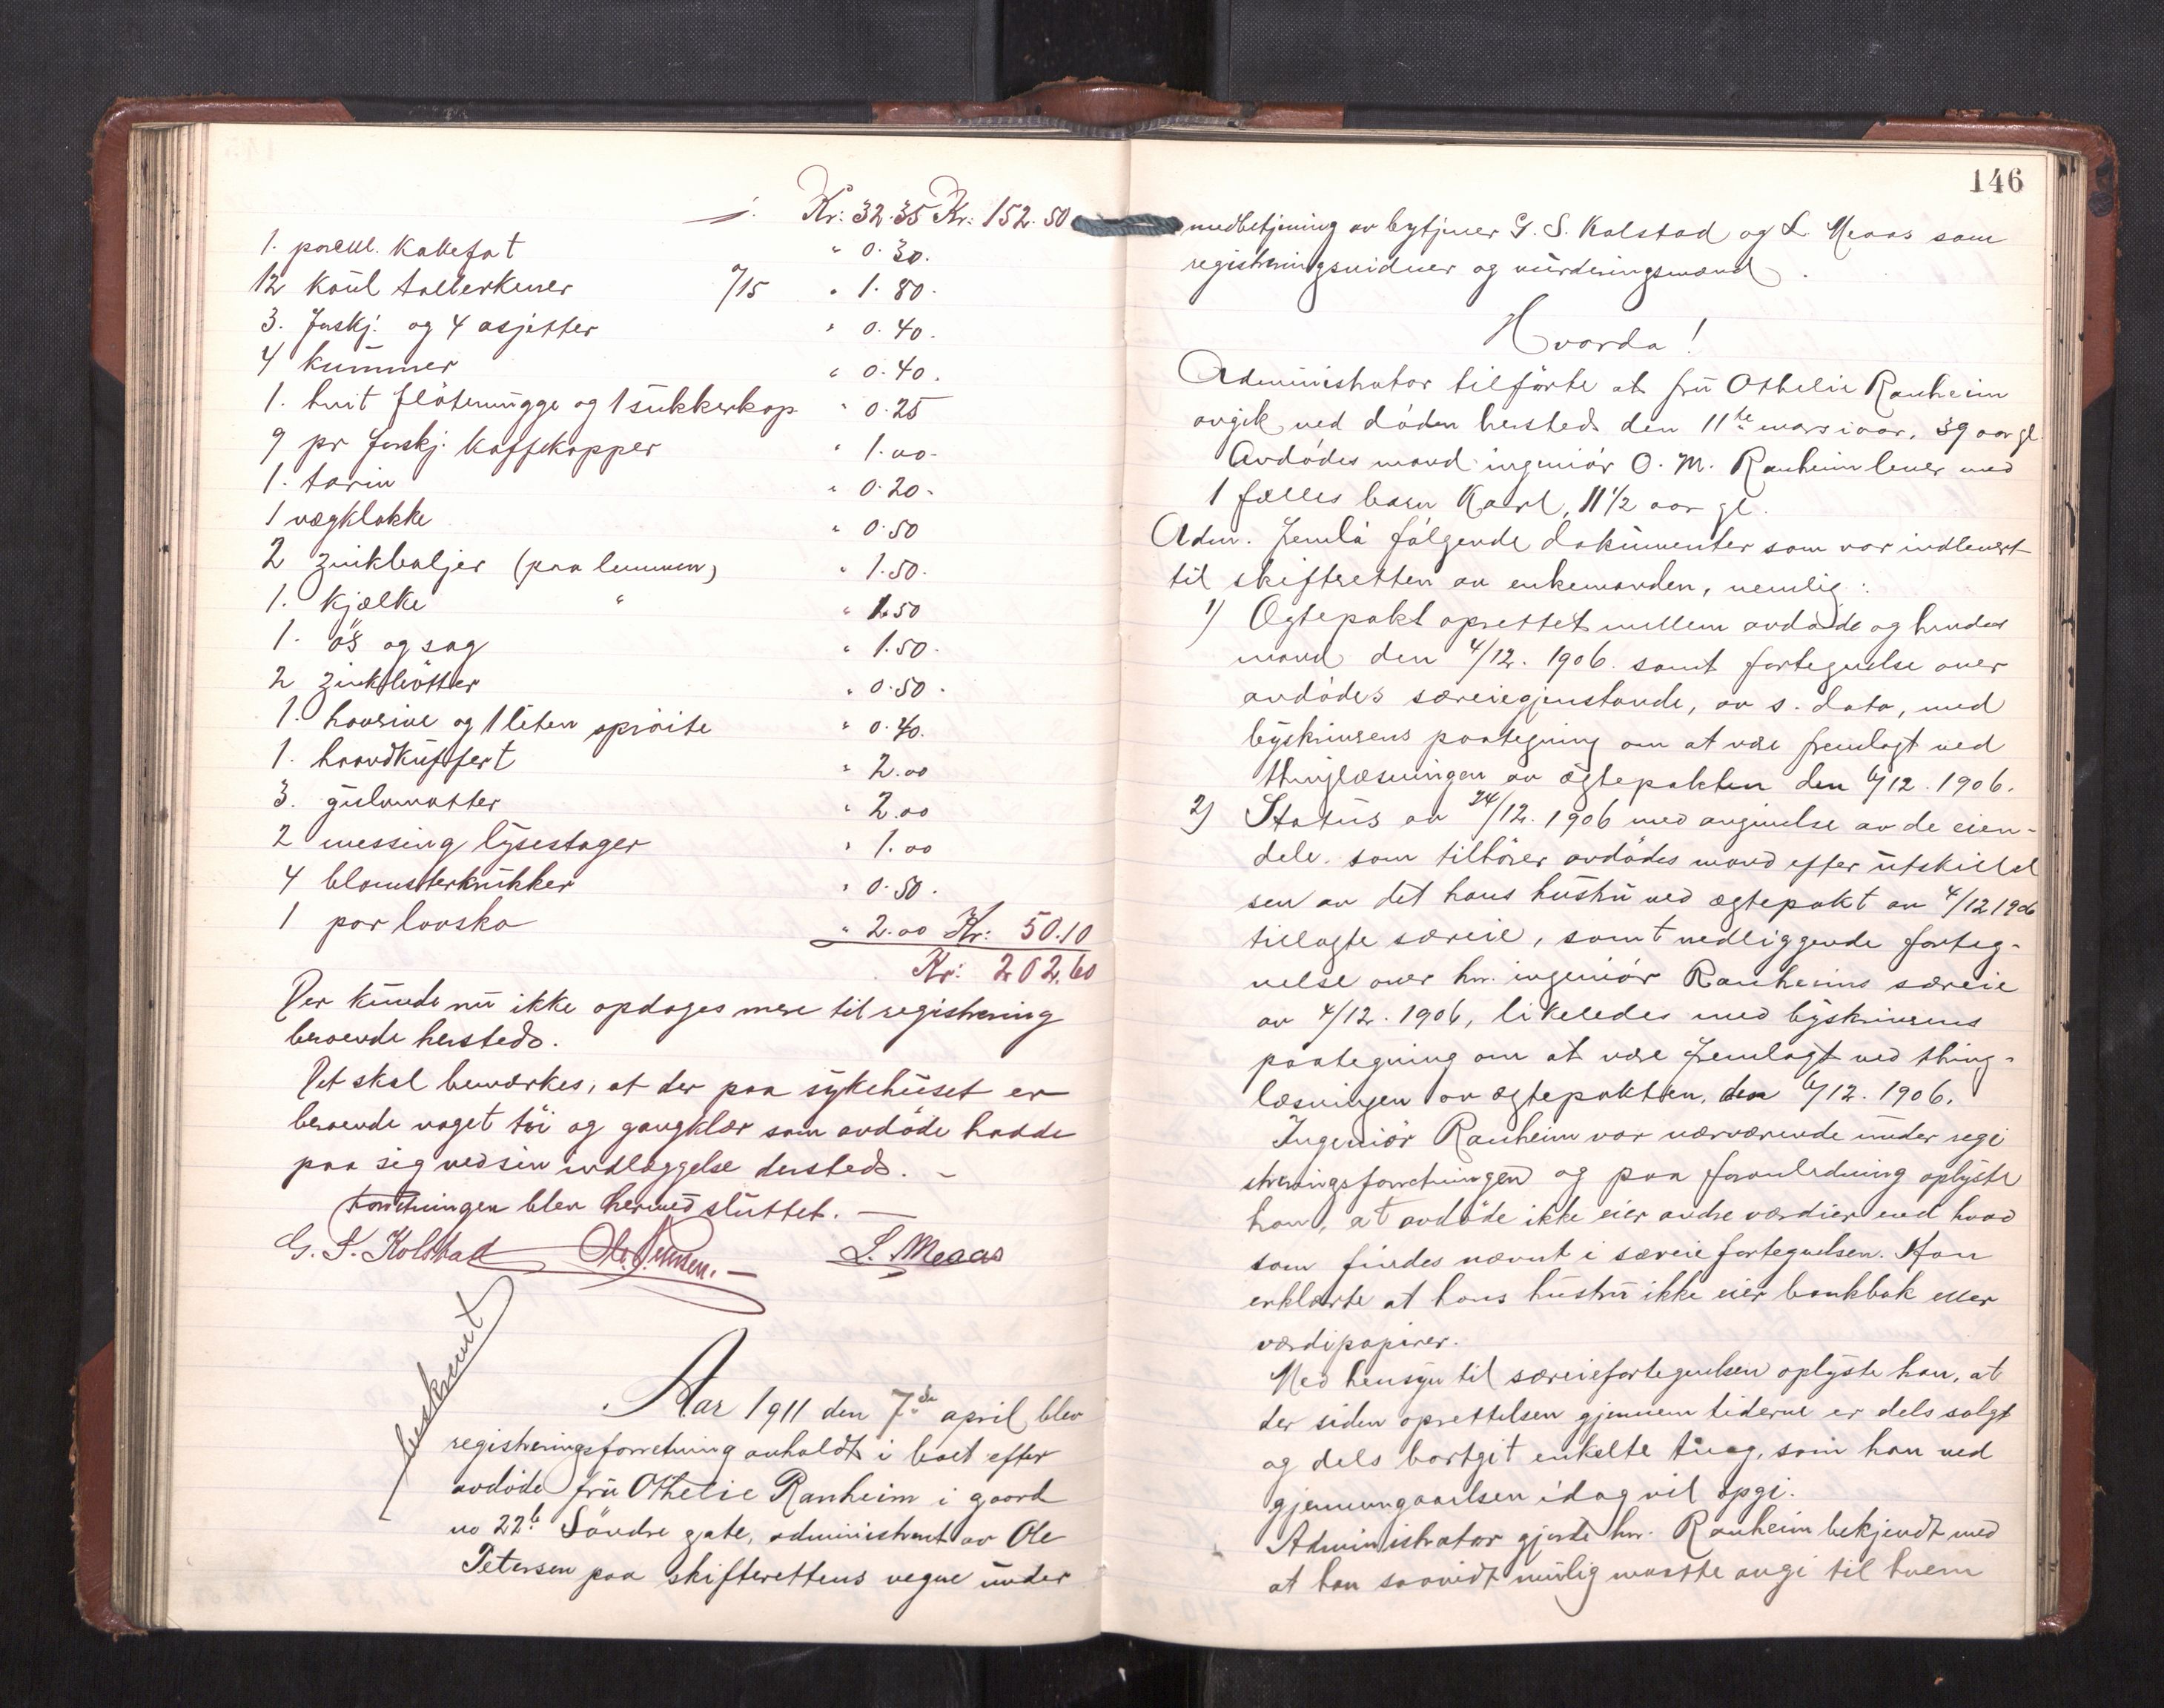 ÷ Kr: 32.35 Kr: 152.50
1. porcel. Kakefat " 0.30.
12 koul tallerkener 7/15 " 1.80.
3. forskj. og 4 asjetter " 0.40.
4 kummer " 0.40.
1. hvit flötemugge og 1 sukkerkop " 0.25
9 pr forskj. kaffekopper " 1.00
1. tarin " 0.20.
1 vægklokke " 0.50
2 zinkbaljer (paa lemmen) " 1.50.
1. kjælke " " 1.50
1. ös og sag " 1.50.
2 zinkbötter " 0.50.
1. haarsive og 1 liten spröite " 0.40.
1. haandkuffert " 2.00
3. gulvmatter " 2.00
2 messing lysestager " 1.00
4 blomsterkrukker " 0.50.
1 par lovsko " 2.00 Kr: 50.10
Kr: 202.60
Der kunde nu ikke opdages mere til registrering
beroende hersteds.
Det skal bemærkes, at der paa sykehuset er
beroende noget töi og gangklær som avdöde hadde
paa sig ved sin indlæggelse dersteds. –
Forretningen blev hermed sluttet. –
G. S. Kolstad L. Meaas
beskrevet
Aar 1911 den 7de april blev
registreringsforretning avholdt i boet efter
avdöde fru Othelie Ranheim i gaard
no 22b Söndre gate, administrert av Ole
Petersen paa skifterettens vegne under
146
medbetjening av bytjener G. S. Kolstad og L. Meaas som
registreringsvidner og vurderingsmænd.
Hvorda!
Administrator tilförte at fru Othelie Ranheim
avgik ved döden hersteds den 11te mars iaar, 39 aar gl.
Avdödes mand ingeniör O. M. Ranheim lever med
1 fælles barn Karl, 11 1/2 aar gl.
Adm. fremla fölgende dokumenter som var indlevert
til skifteretten av enkemanden, nemlig:
1) Egtepakt oprettet mellem avdöde og hendes
mand den 4/12. 1906. samt fortegnelse over
avdödes særeiegjenstande, av s. dato, med
byskriverens paategning om at være fremlagt ved
thinglæsningen av egtepakten den 6/12. 1906.
2) Status av 24/12. 1906 med angivelse av de eien-
dele. som tilhörer avdödes mand efter utskillel
sen av det hans hustru ved ægtepakt av 4/12 1906
tillagte særeie, samt vedliggende forteg-
nelse over hr. ingeniör Ranheims særeie
av 4/12. 1906, likeledes med byskriverens
paategning om at være fremlagt ved thing-
læsningen av ægtepakten, den 6/12. 1906.
Ingeniör Ranheim var nærværende under regi
streringsforretningen og paa foranledning oplyste
han, at avdöde ikke eier andre værdier end hvad
som findes nævnt i særeiefortegnelsen. Han
erklærte at hans hustru ikke eier bankbok eller
værdipapirer.
Med hensyn til særeiefortegnelsen oplyste han, at
der siden oprettelsen gjennem tiderne er dels solgt
og dels bortgit enkelte ting, som han ved
gjennemgaaelsen idag vil opgi.
Administrator gjorde hr. Ranheim bekjendt med
at han saavidt mulig maatte angi til hvem